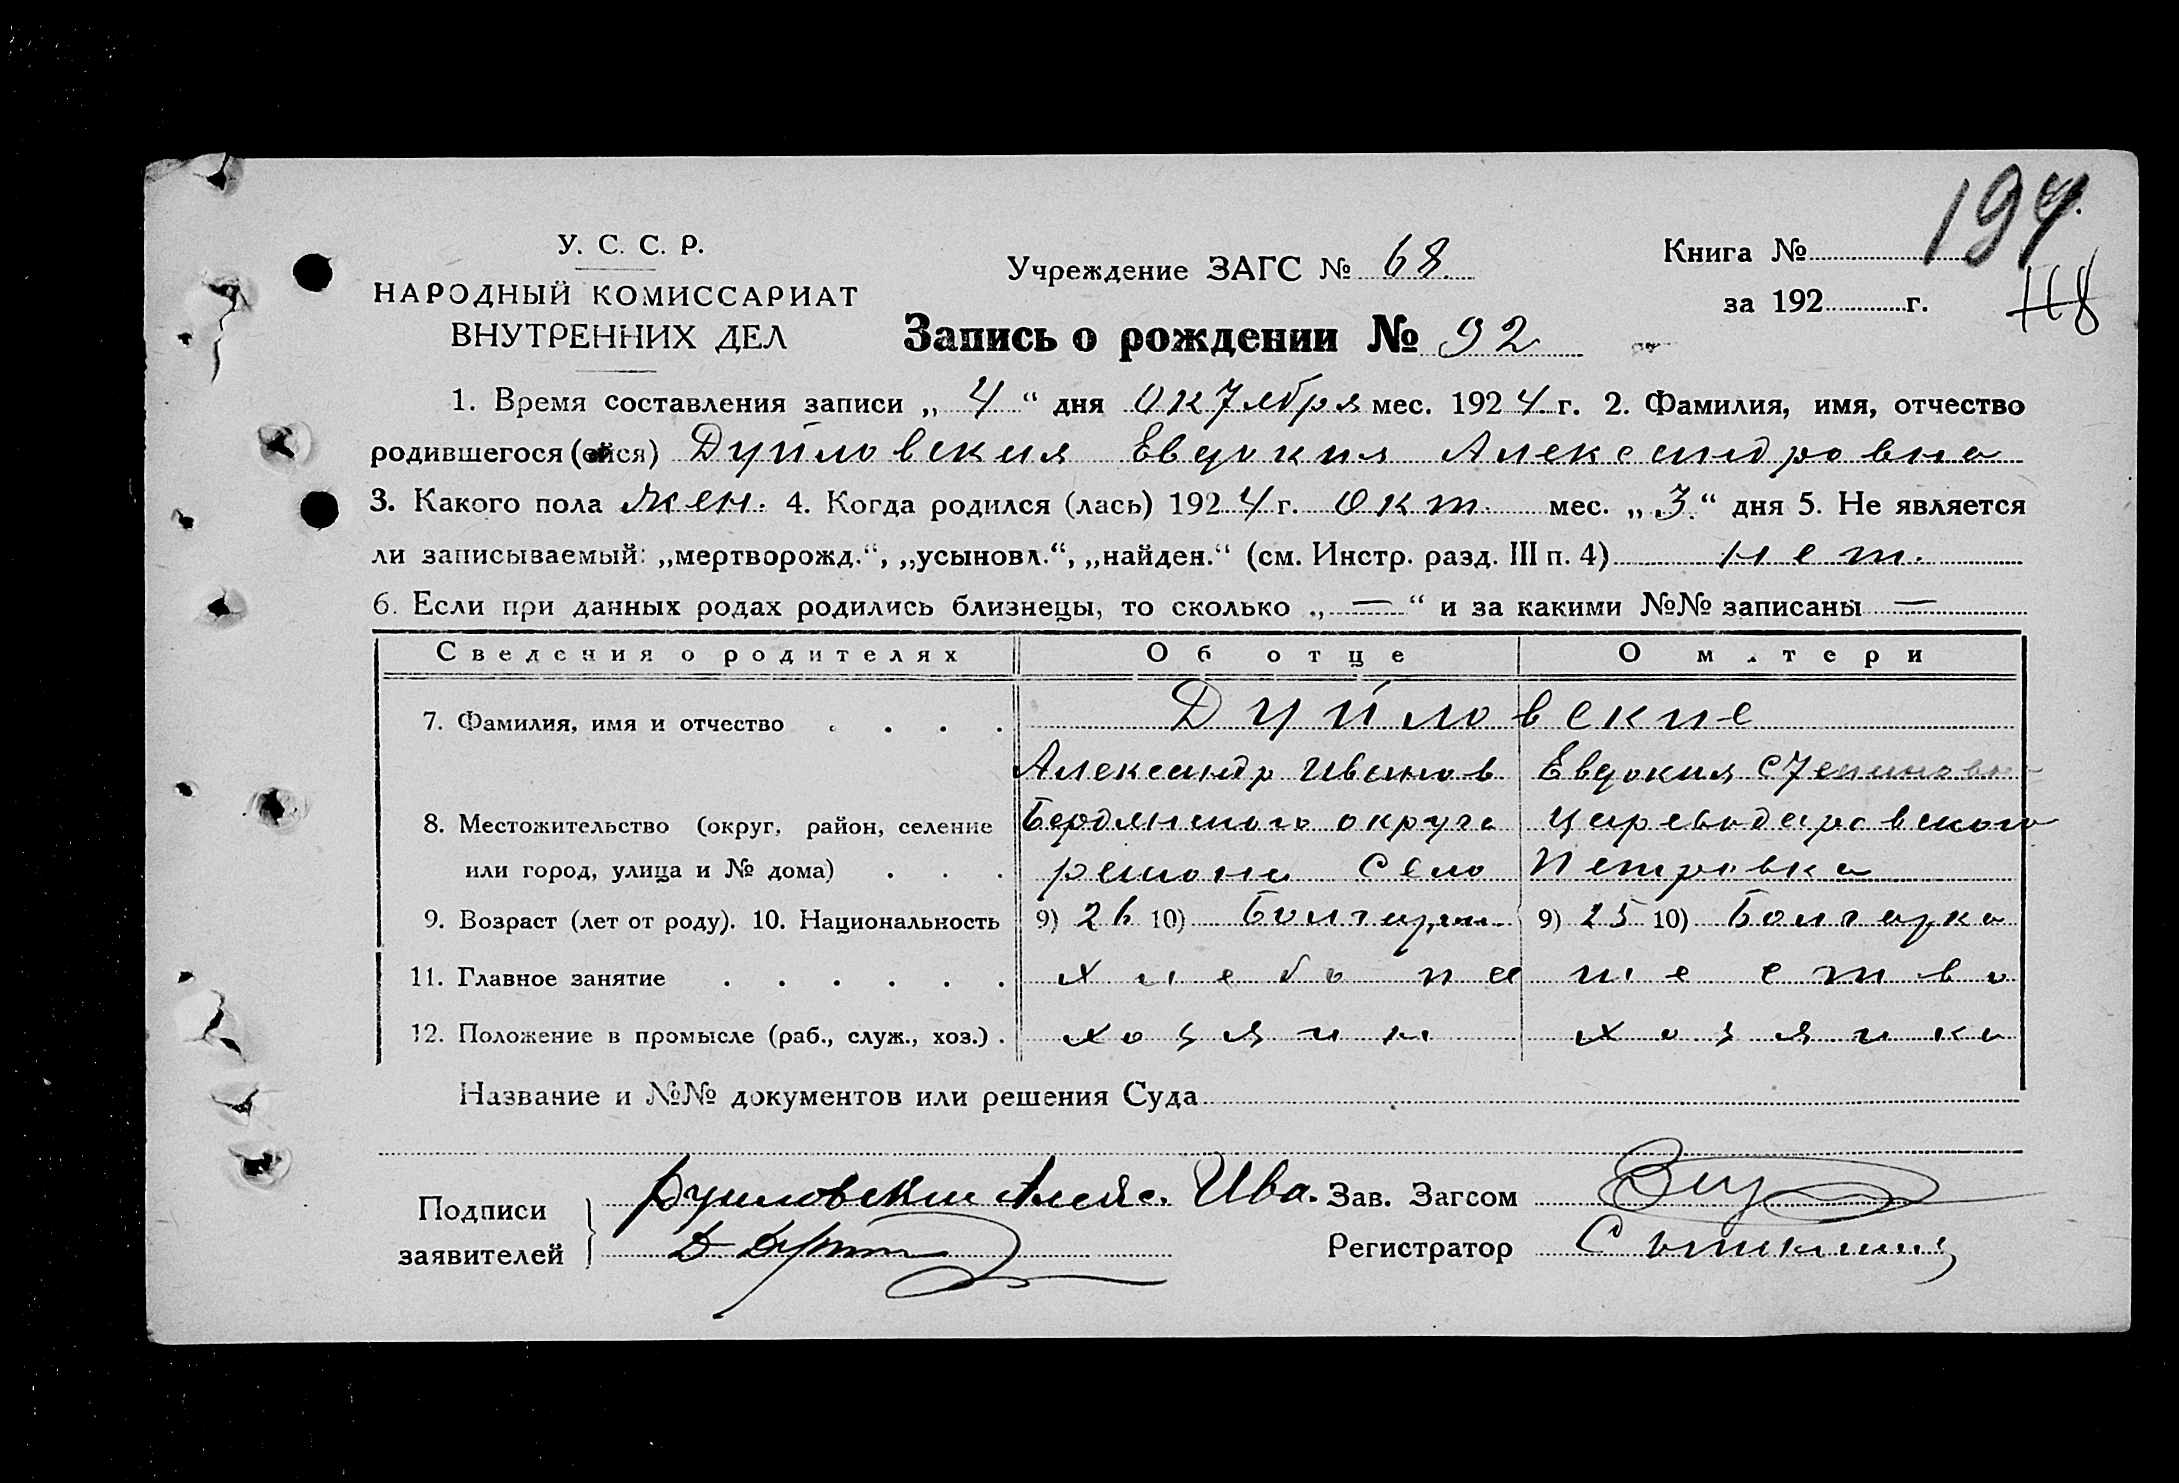 194.
У. С. С. Р.
Учреждение ЗАГС № 68
Книга №
НАРОДНЫЙ КОМИССАРИАТ
за 192 г.
118
ВНУТРЕННИХ ДЕЛ
Запись о рождении № 92
1. Время составления записи „ 4 “ дня Октября мес. 1924 г. 2. Фамилия, имя, отчество
родившегося (ейся) Дуйловская Евдокия Александровна
3. Какого пола жен. 4. Когда родился (лась) 1924 г. окт. мес. „ 3 “ дня 5. Не является
ли записываемый: „мертворожд.“, „усыновл.“, „найден.“ (см. Инстр. разд. III п. 4) нет.
6. Если при данных родах родились близнецы, то сколько „ — “ и за какими №№ записаны —
Сведения о родителях Об отце О матери
7. Фамилия, имя и отчество . . . . Дуйловские
Александр Иванов Евдокия Степановна
8. Местожительство (округ, район, селение Бердянского округа Цареводаровского
или город, улица и № дома) . . . района Село Петровка
9. Возраст (лет от роду). 10. Национальность 9) 26 10) Болгарин 9) 25 10) Болгарка
11. Главное занятие . . . . . . хлебопашество
12. Положение в промысле (раб., служ., хоз.) . хозяин хозяйка
Название и №№ документов или решения Суда
Подписи
заявителей
Дуйловский Алекс. Ива.
Зав. Загсом
Регистратор